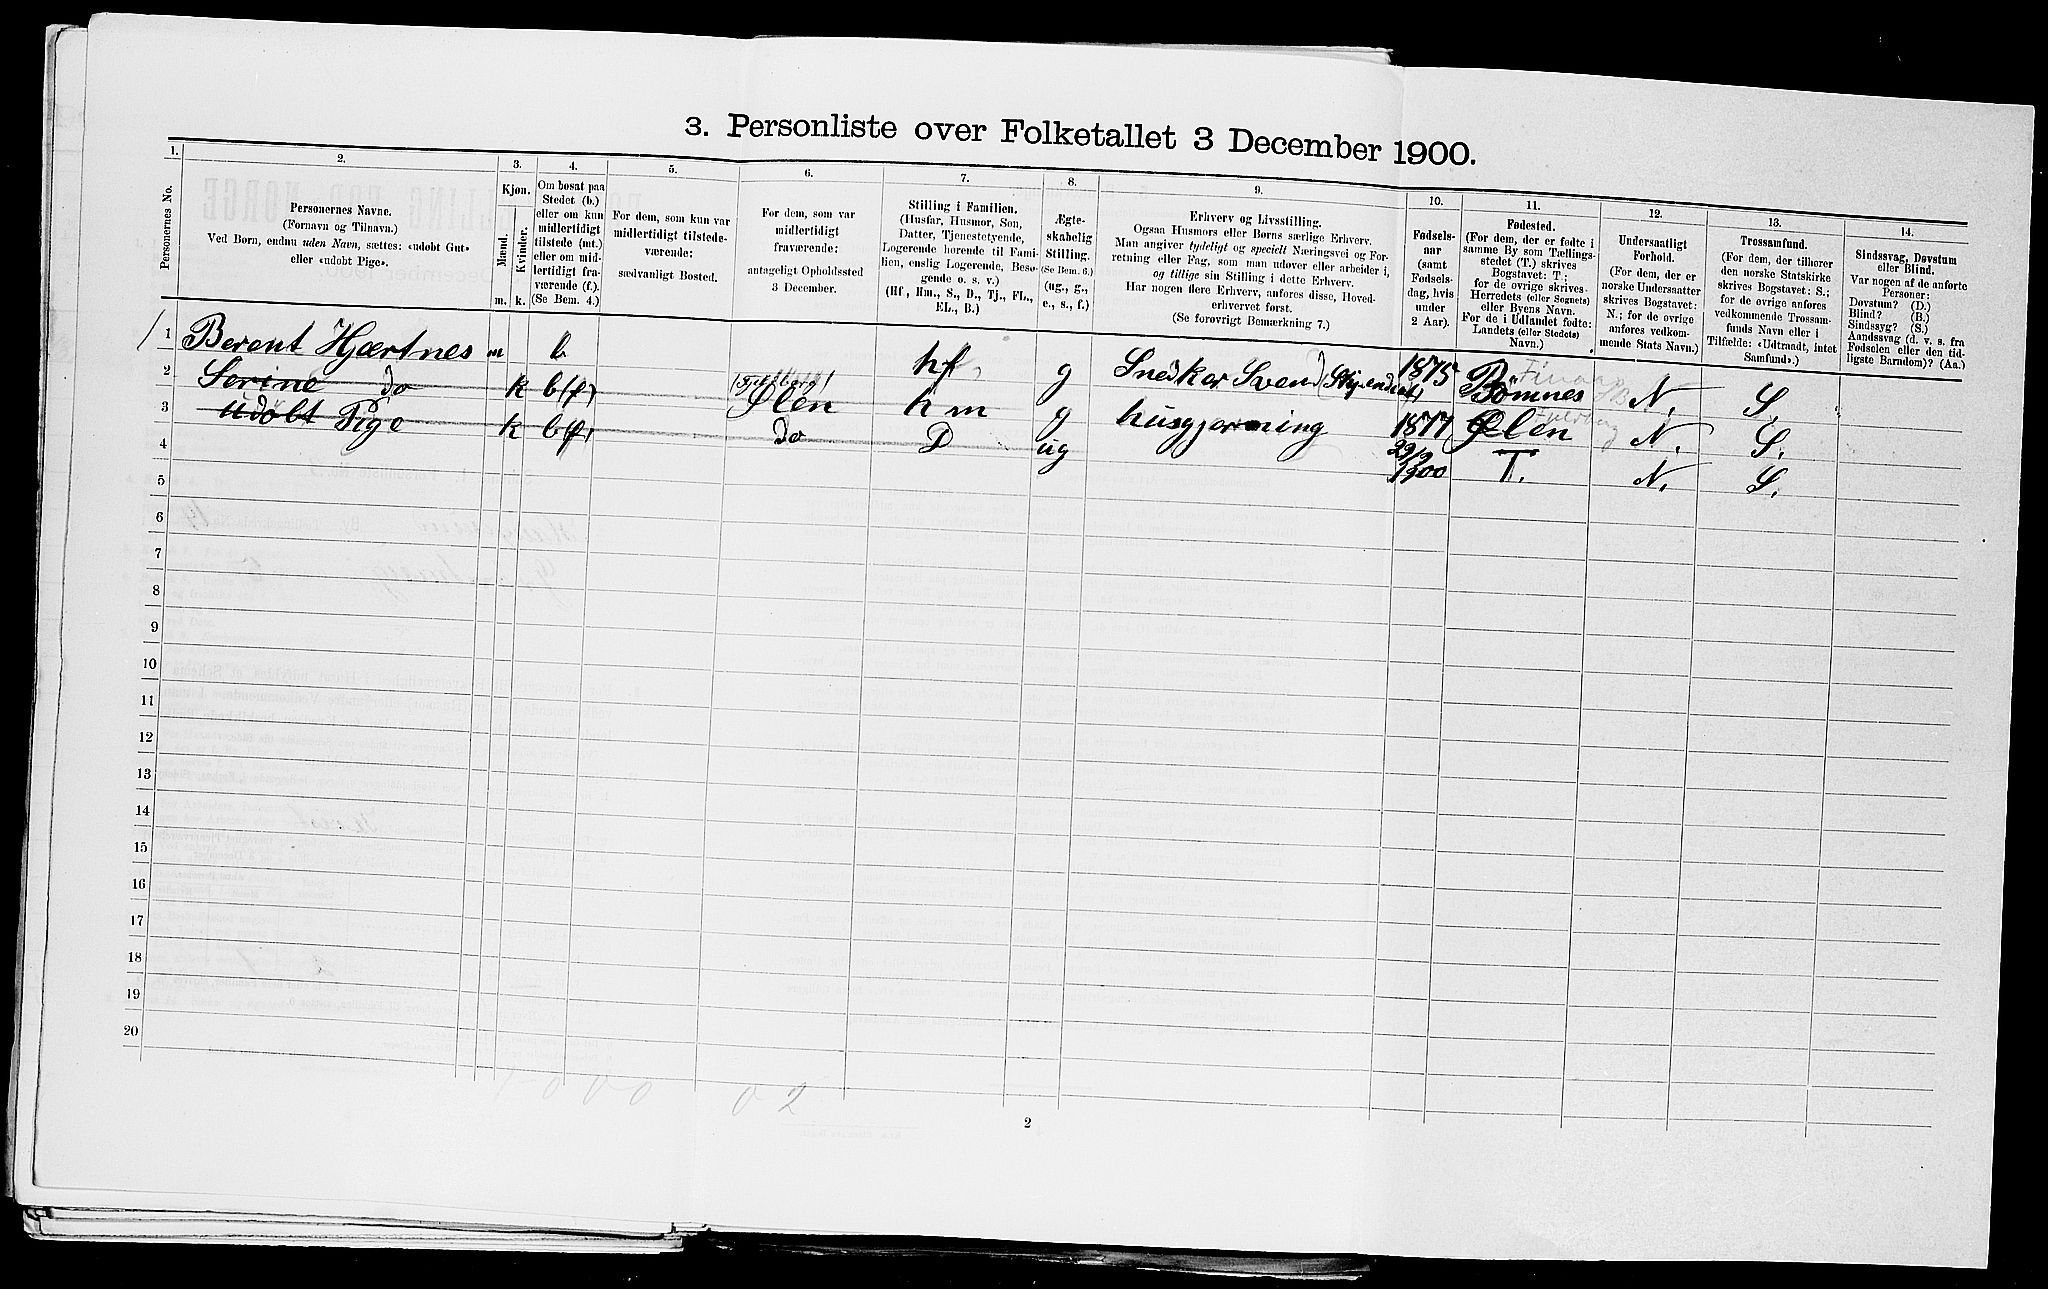 3. Personliste over Folketallet 3 December 1900.
1.
Personernes No.
2.
Personernes Navne.
(Fornavn og Tilnavn.)
Ved Børn, endnu uden Navn, sættes: «udøbt Gut»
eller «udøbt Pige».
3.
Kjøn.
Mænd.
Kvinder.
m.
k.
4.
Om bosat paa
Stedet (b.)
eller om kun
midlertidigt
tilstede (mt.)
eller om mid-
lertidigt fra-
værende (f.).
(Se Bem. 4.)
5.
For dem, som kun var
midlertidigt tilstede-
værende:
sædvanligt Bosted.
6.
For dem, som var
midlertidigt
fraværende:
antageligt Opholdssted
3 December.
7.
Stilling i Familien.
(Husfar, Husmor, Søn,
Datter, Tjenestetyende,
Logerende hørende til Fami-
lien, enslig Logerende, Besø-
gende o. s. v.)
(Hf., Hm., S., D., Tj., FL.,
EL., B.)
8.
Ægte-
skabelig
Stilling.
(Se Bem. 6.)
(ug., g.,
e., s., f.)
9.
Erhverv og Livsstilling.
Ogsaa Husmors eller Børns særlige Erhverv.
Man angiver tydeligt og specielt Næringsvei og For-
retning eller Fag, som man udøver eller arbeider i,
og tillige sin Stilling i dette Erhverv.
Har nogen flere Erhverv, anføres disse, Hoved-
erhvervet først.
(Se forøvrigt Bemærkning 7.)
10.
Fødsels-
aar
(samt
Fødsels-
dag, hvis
under
2 Aar).
11.
Fødested.
(For dem, der er fødte i
samme By som Tællings-
stedet (T.) skrives
Bogstavet: T.;
for de øvrige skrives
Herredets (eller Sognets)
eller Byens Navn.
For de i Udlandet fødte:
Landets (eller Stedets)
Navn.)
12.
Undersaatligt
Forhold.
(For dem, der er
norske Undersaatter
skrives Bogstavet:
N.; for de øvrige
anføres vedkom-
mende Stats Navn.)
13.
Trossamfund.
(For dem, der tilhører
den norske Statskirke
skrives Bogstavet: S.;
for de øvrige anføres
vedkommende Trossam-
funds Navn eller i
Tilfælde: «Udtraadt, intet
Samfund».)
14.
Sindssvag, Døvstum
eller Blind.
Var nogen af de anførte
Personer:
Døvstum? (D.)
Blind? (B.)
Sindssyg? (S.)
Aandssvag (d. v. s. fra
Fødselen eller den tid-
ligste Barndom)? (Aa.)
1 Berent Hjærtnes m b hf g Snedker Svend (Stipendiat) 1875 Bömnes N. S.
2 Serine do k b(f) Ølen hm g husgjerning 1877 Ølen N. S.
3 udöbt Pige k b(f) do D ug 29/9 1900 T. N. S.
4
5
6
7
8
9
10
11
12
13
14
15
16
17
18
19
20
02
2